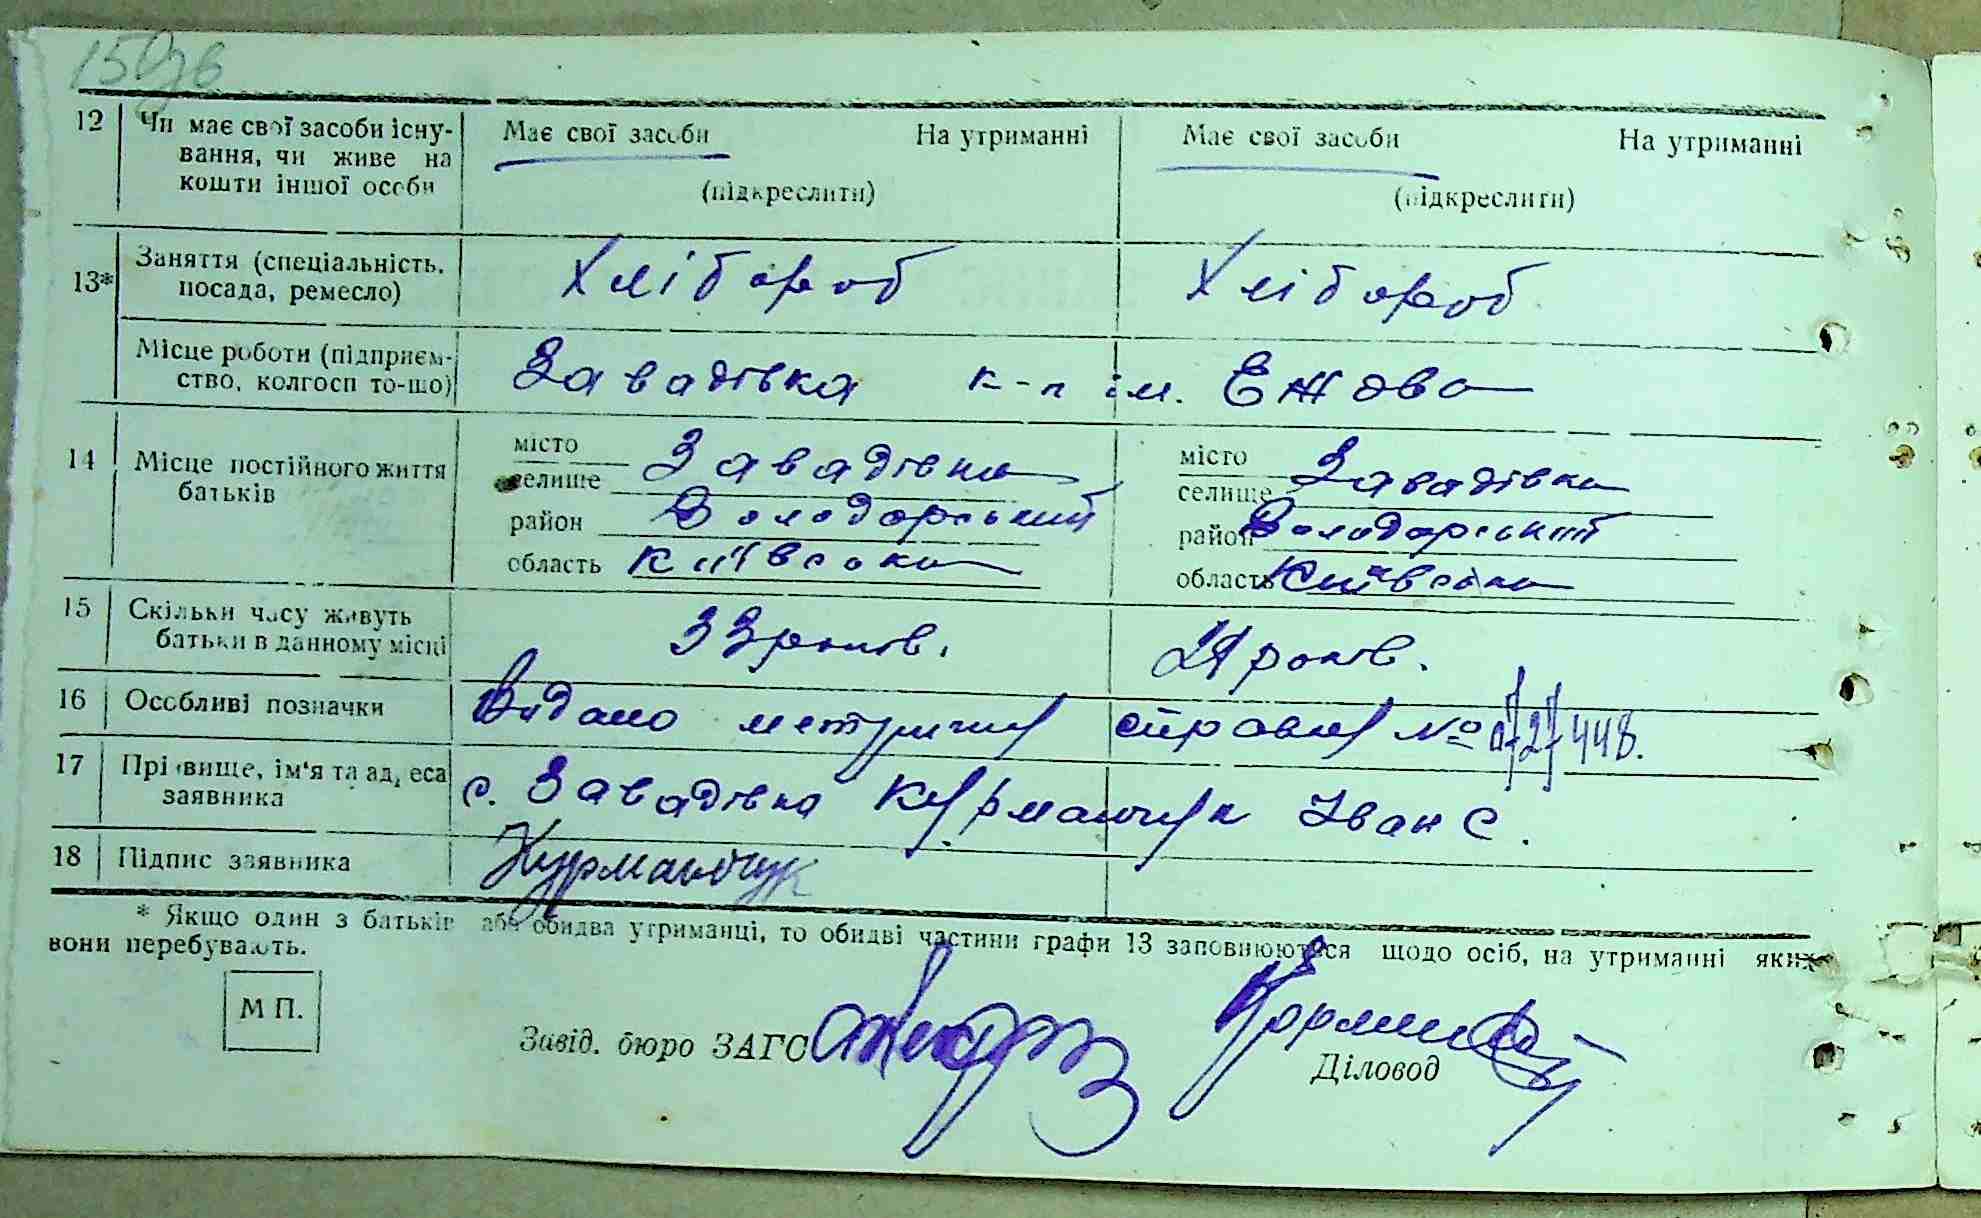 150зв
12 Чи має свої засоби існу- Має свої засоби На утриманні Має свої засоби На утриманні
вання, чи живе на
кошти іншої особи (підкреслити) (підкреслити)
13* Заняття (спеціальність, Хлібороб Хлібороб
посада, ремесло)
Місце роботи (підприєм- Завадівка к-п ім. Ежова
ство, колгосп то-що)
14 Місце постійного життя місто Завадівка місто Завадівка
батьків селище селище
район Володарський район Володарський
область Київська область Київська
15 Скільки часу живуть 33 років. 29 років.
батьки в данному місці
16 Особливі позначки Видано метричну справку №
17 Прізвище, ім'я та адреса с. Завадівка Курманчук Іван С.
заявника
18 Підпис заявника Курманчук
* Якщо один з батьків або обидва утриманці, то обидві частини графи 13 заповнюються щодо осіб, на утриманні яких
вони перебувають.
М П.
Завід. бюро ЗАГС
Діловод